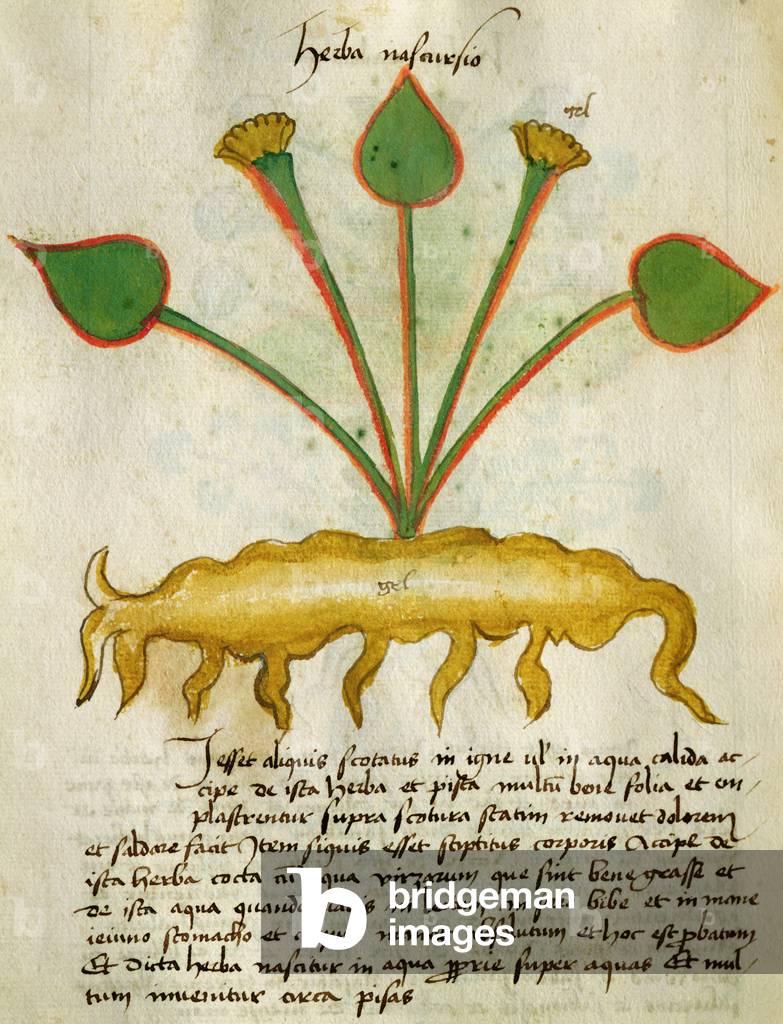 herba nascursio
gel
gel
Iesset aliquis scotatus in igne ul' in aqua calida ac-
cipe de ista herba et pista multū bene folia et em-
plastrentur supra scotura statim removet dolorem
et saldare facit Item siquis esset stiptitus corporis Accipe de
ista herba cocta cū aqua virzarum que sint bene grasse et
de ista aqua quando bibe et in mane
ieiuno stomacho et solutum et hoc est pbatum
Et dicta herba nascitur in aqua pprie super aquas Et mul-
tum invenitur circa pisas
b bridgeman
images